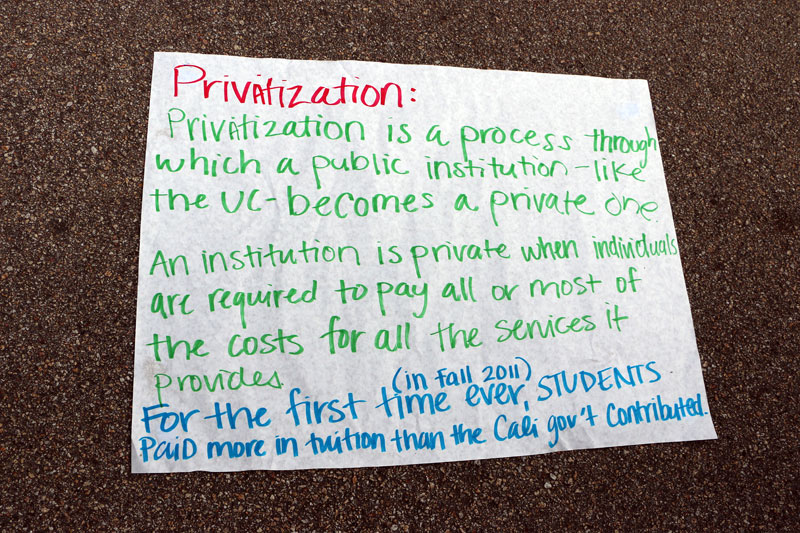 Privatization:
Privatization is a process through
which a public institution - like
the UC - becomes a private one.
An institution is private when individuals
are required to pay all or most of
the costs for all the services it
provides
(in fall 2011)
For the first time ever, STUDENTS
PaiD more in tuition than the Cali gov't contributed.